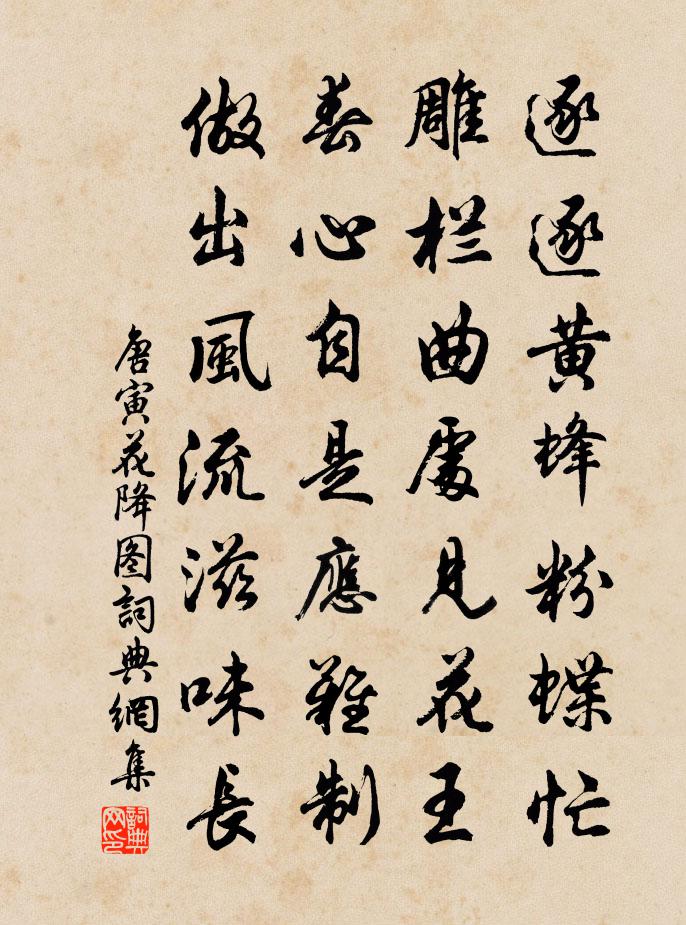 逐逐黄蜂粉蝶忙
雕栏曲處見花王
春心自是應難制
做出風流滋味長
唐寅花降图詞典網集
詞典网印